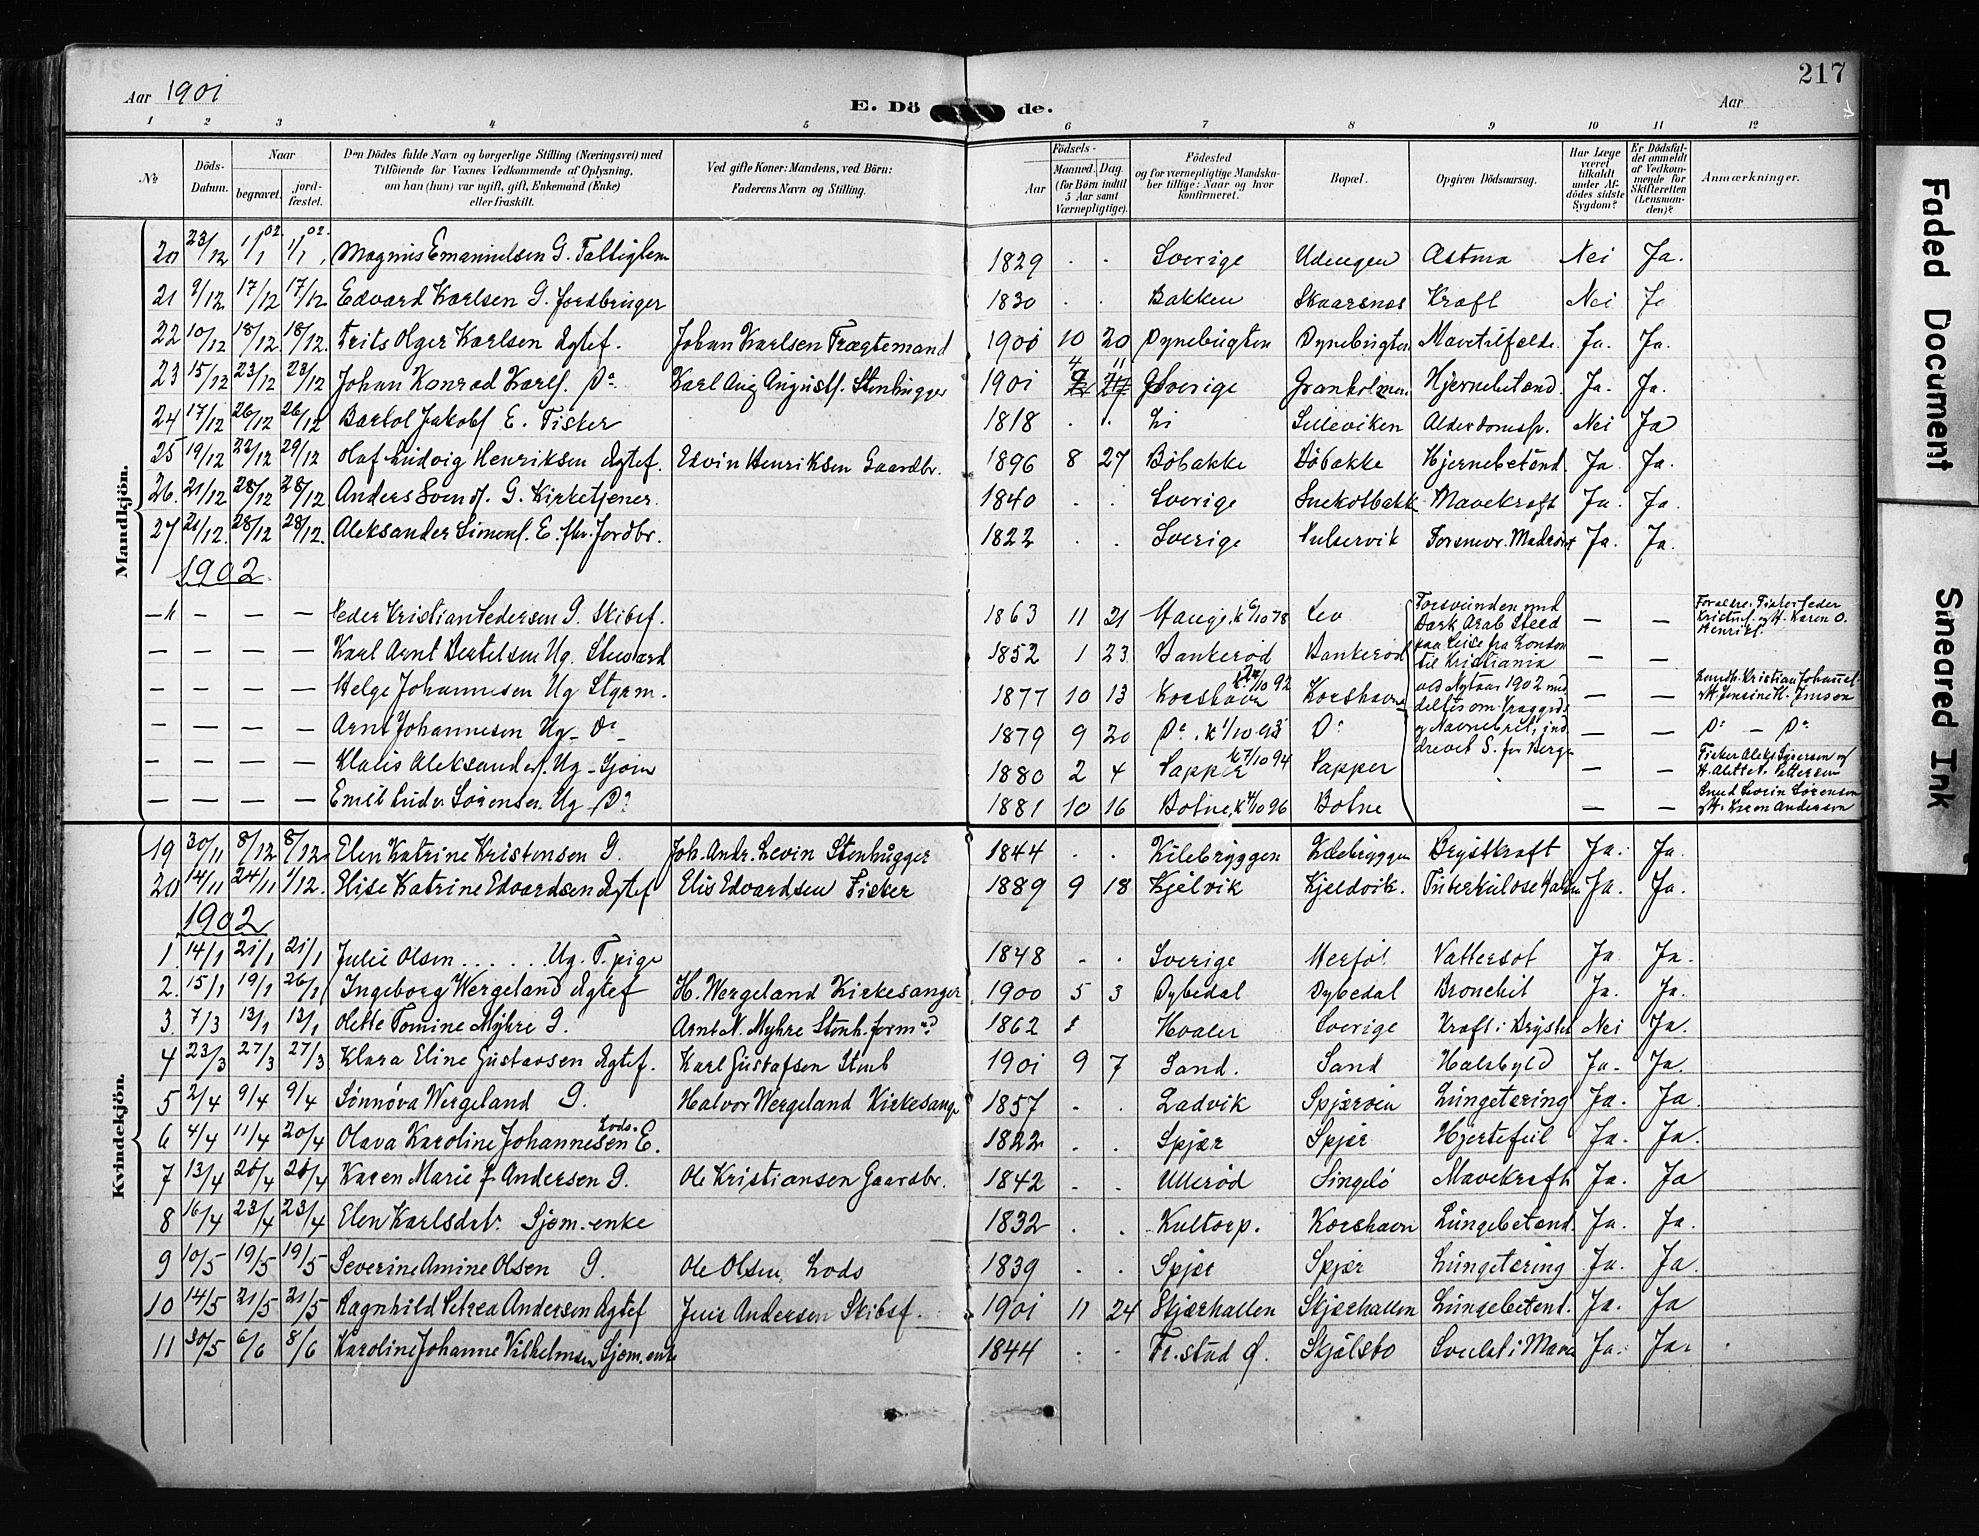 217
Aar 1901
E. Döde.
Aar
1 2 3 4 5 6 7 8 9 10 11 12
No
Döds-Datum.
Naar
begravet.
jord-fæstet.
Den Dödes fulde Navn og borgerlige Stilling (Næringsvei) med
Tilföiende for Voxnes Vedkommende af Oplysning,
om han (hun) var ugift, gift, Enkemand (Enke)
eller fraskilt.
Ved gifte Koner: Mandens, ved Börn:
Faderens Navn og Stilling.
Födsels-
Aar
Maaned. Dag.
(for Börn indtil
5 Aar samt
Værnepligtige).
Födested
og for værnepligtige Mandska-
ber tillige: Naar og hvor
konfirmeret.
Bopæl.
Opgiven Dödsaarsag.
Har Læge
været
tilkaldt
under Af-
dödes sidste
Sygdom?
Er Dödsfal-
det anmeldt
af Vedkom-
mende for
Skifteretten
(Lensman-
den)?
Anmærkninger.
Mandkjön.
20 23/12 1/1 02 1/1 02 Magnus Emanuelsen G. Fattiglem 1829 . . Sverige Udengen Astma Nei Ja.
21 9/12 17/12 17/12 Edvard Karlsen G. Jordbruger 1830 . . Bakken Skaarsnes Kræft Nei Ja
22 10/12 18/12 18/12. Frits Olger Karlsen Ægtef. Johan Karlsen Frægtemand 1900 10 20 Dynebugten Dynebugten Mavetilfælde. Ja. Ja.
23 15/12 23/12 23/12 Johan Konrad Karls. Do. Karl Aug Augusts. Stenhugger 1901 4 11 Sverige Granholmen Hjernebetænd. Ja. Ja.
24 17/12 26/12 26/12 Bartol Jakobs E. Fisker 1818 . . Li Lilleviken Alderdomssv. Nei Ja
25 19/12 22/12 29/12 Olaf Ludvig Henriksen Ægtef. Edvin Henriksen Gaardbr. 1896 8 27 Böbakke Böbakke Hjernebetænd. Ja. Ja.
26. 21/12 28/12 28/12. Anders Svends. G. Kirketjener. 1840 . . Sverige Snekotbakk. Mavekræft Ja. Ja.
27 21/12. 28/12 28/12. Aleksander Simons. E. fhv. Jordbr. 1822 . . Sverige Pulservik Forsnevr. Madröret Ja. Ja.
1902.
— — — — Peder Kristian Pedersen G. Skibsf. 1863 11 21 Hauge. k 6/10 78 Lev — —
— — — — Karl Arnt Bertelsen Ug. Steward 1852 1 23 Bankeröd Bankeröd — —
— — — — Helge Johannesen Ug Styrm. 1877 10 13 Korshavn k 2/10 92 Korshavn — —
— — — — Arnt Johannesen Ug — Do — 1879 9 20 Do. k 1/10 93 Do — — Do — Do
— — — — Klaus Aleksanders. Ug — Sjöm 1880 2 4 Papper k 7/10 94 Papper — —
— — — — Emil Luder Sörensen Ug Do 1881 10 16 Botne, k 4/10 96 Botne — —
Forsvunden med
Bark Arab Steed
paa Reise fra London
til Kristiania
ved Nytaar 1902 med
deltes om Vraggods
og Navnebret, ind
drevet S. for Bergen
Forældre: Fisker Peder
Kristians. og H. Karen O.
Henriks.
Landh. Kristian Johannes.
og H. Jensine K. Jonson
Fisker Aleks. Syversen og
H. Alette N. Pettersen
Smed Sörin Sörenson
og H. Karen Anderson
Kvindekjön.
19 30/11 8/12 8/12. Elen Katrine Kristensen G. Joh. Andr. Levin Stenhugger 1844 . . Kilebryggen Kilebryggen Brystkræft Ja. Ja.
20 14/11 24/11 1/12. Elise Katrine Edvardsen Ægtef Elis Edvardsen Fisker 1889 9 18 Kjelvik Kjeldvik. Tuberkulose Ja. Ja.
1902
1. 14/1 21/1 21/1 Julie Olsen . . . . . Ug. T. pige 1848 . . Sverige Vattersot Ja Ja.
2. 15/1 19/1 26/1 Ingeborg Wergeland Ægtef H. Wergeland Kirkesanger 1900 5 3 Dybedal Dybedal Bronchit Ja. Ja.
3. 7/3 13/1 13/1 Olette Tomine Myhre G. Arnt N. Myhre Stenh. formd 1862 Hvaler Sverige Kræft i Brystet Nei Ja.
4 23/3 27/3 27/3 Klara Eline Gustavsen Ægtef. Karl Gustafsen Stenh 1901 9 7 Sand. Sand Halsbyld Ja. Ja.
5 2/4 9/4 9/4 Sönnöva Wergeland G. Halvor Wergeland Kirkesange 1857 . . Ladvik Spjæröen Lungetæring Ja. Ja.
6 4/4 11/4 20/4 Olava Karoline Johannesen Lods. E. 1822 . . Spjær Spjær Hjertefeil Ja. Ja.
7 13/4 20/4 20/4 Karen Marie J. Andersen G. Ole Kristiansen Gaardbr. 1842 . . Ulleröd Singelö Mavekræft Ja. Ja
8 16/4 23/4 23/4 Elen Karlsdatr. Sjöm. enke 1832 . . Kultorp. Korshavn Lungebetænd. Ja. Ja.
9 10/5 19/5 19/5 Severine Amine Olsen G. Ole Olsen Lods 1839 . . Spjær Spjær Lungetæring Ja. Ja.
10 14/5 21/5 21/5 Ragnhild Petrea Andersen Ægtef Juus Andersen Skibsf. 1901 11 24 Skjærhallen Skjærhallen Lungebetænd. Ja. Ja
11 30/5 6/6 8/6 Karoline Johanne Vilhelmsen Sjöm. enke 1844 . . Fr.stad Ø. Skjælsbo Svulst i Mave Ja. Ja.
Faded Document
Smeared Ink